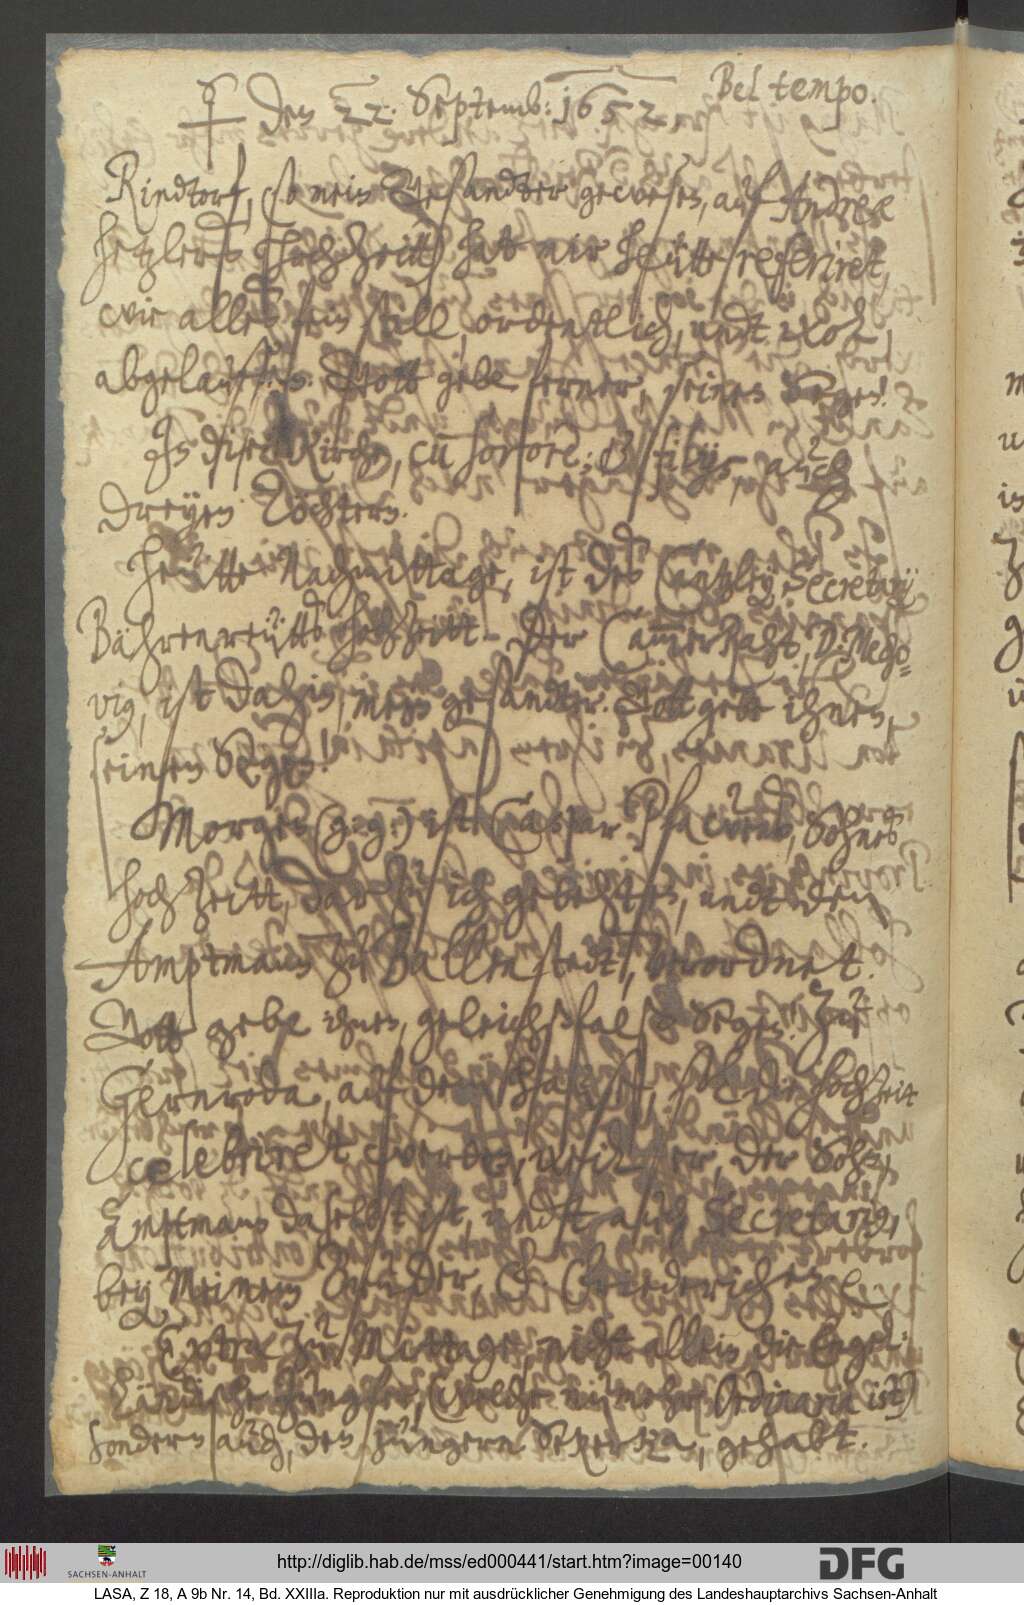 ☿ den 22. Septemb: 1652. Bel tempo.
Rindtorf, so mein Gesandter gewesen, auf Andreæ
Hetzlers Hochzeitt, hat mir heütte referiret,
wie alles fein still, ordentlich, undt wol,
abgelauffen. Gott gebe ferner, seinen Segen!
In die Kirche, cum sorore; & filijs, auch
dreyen Töchtern.
Heütte Nachmittage, ist des Cantzley Secretarij
Bährenreütts hochzeitt. Der CammerRaht, D. Mecho¬
vig, ist dahin, mein gesandter. Gott gebe ihnen,
seinen Segen!
Morgen (g: g:) ist Caspar Pfawens, Sohnes
hochzeitt, darzu ich gebehten, undt den
Amptmann zu Ballenstedt, verordnet.
Gott gebe ihnen, geleichsfalß Segen! Zu
Gernroda, auf dem Hause, soll die hochzeit
celebriret werden, weil er, der Sohn,
Amptmann daselbst ist, undt auch Secretarius,
bey Meinem Bruder, F. Friederichen.
Extra zu Mittage, nicht allein die Engel¬
ländische Jungfer, (welche nunmehr Ordinaria ist)
sondern auch, den Jüngern , gehabt.
http://diglib.hab.de/mss/ed000441/start.htm?image=00140
SACHSEN-ANHALT
DFG
LASA, Z 18, A 9b Nr. 14, Bd. XXIIIa. Reproduktion nur mit ausdrücklicher Genehmigung des Landeshauptarchivs Sachsen-Anhalt